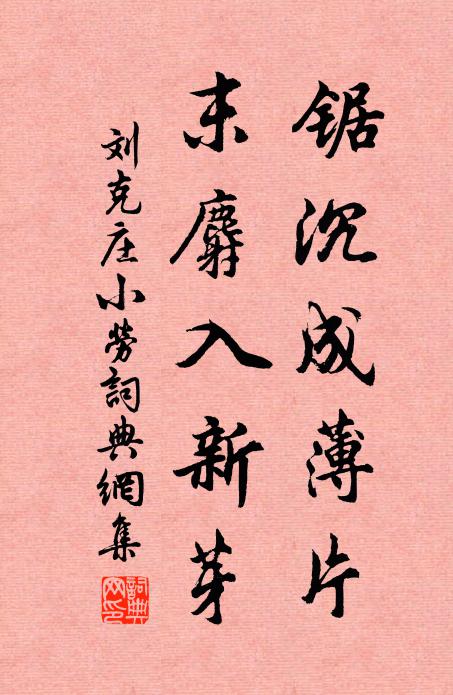 锯沉成薄片
末麝入新芽
刘克庄小勞詞典網集
詞典网印